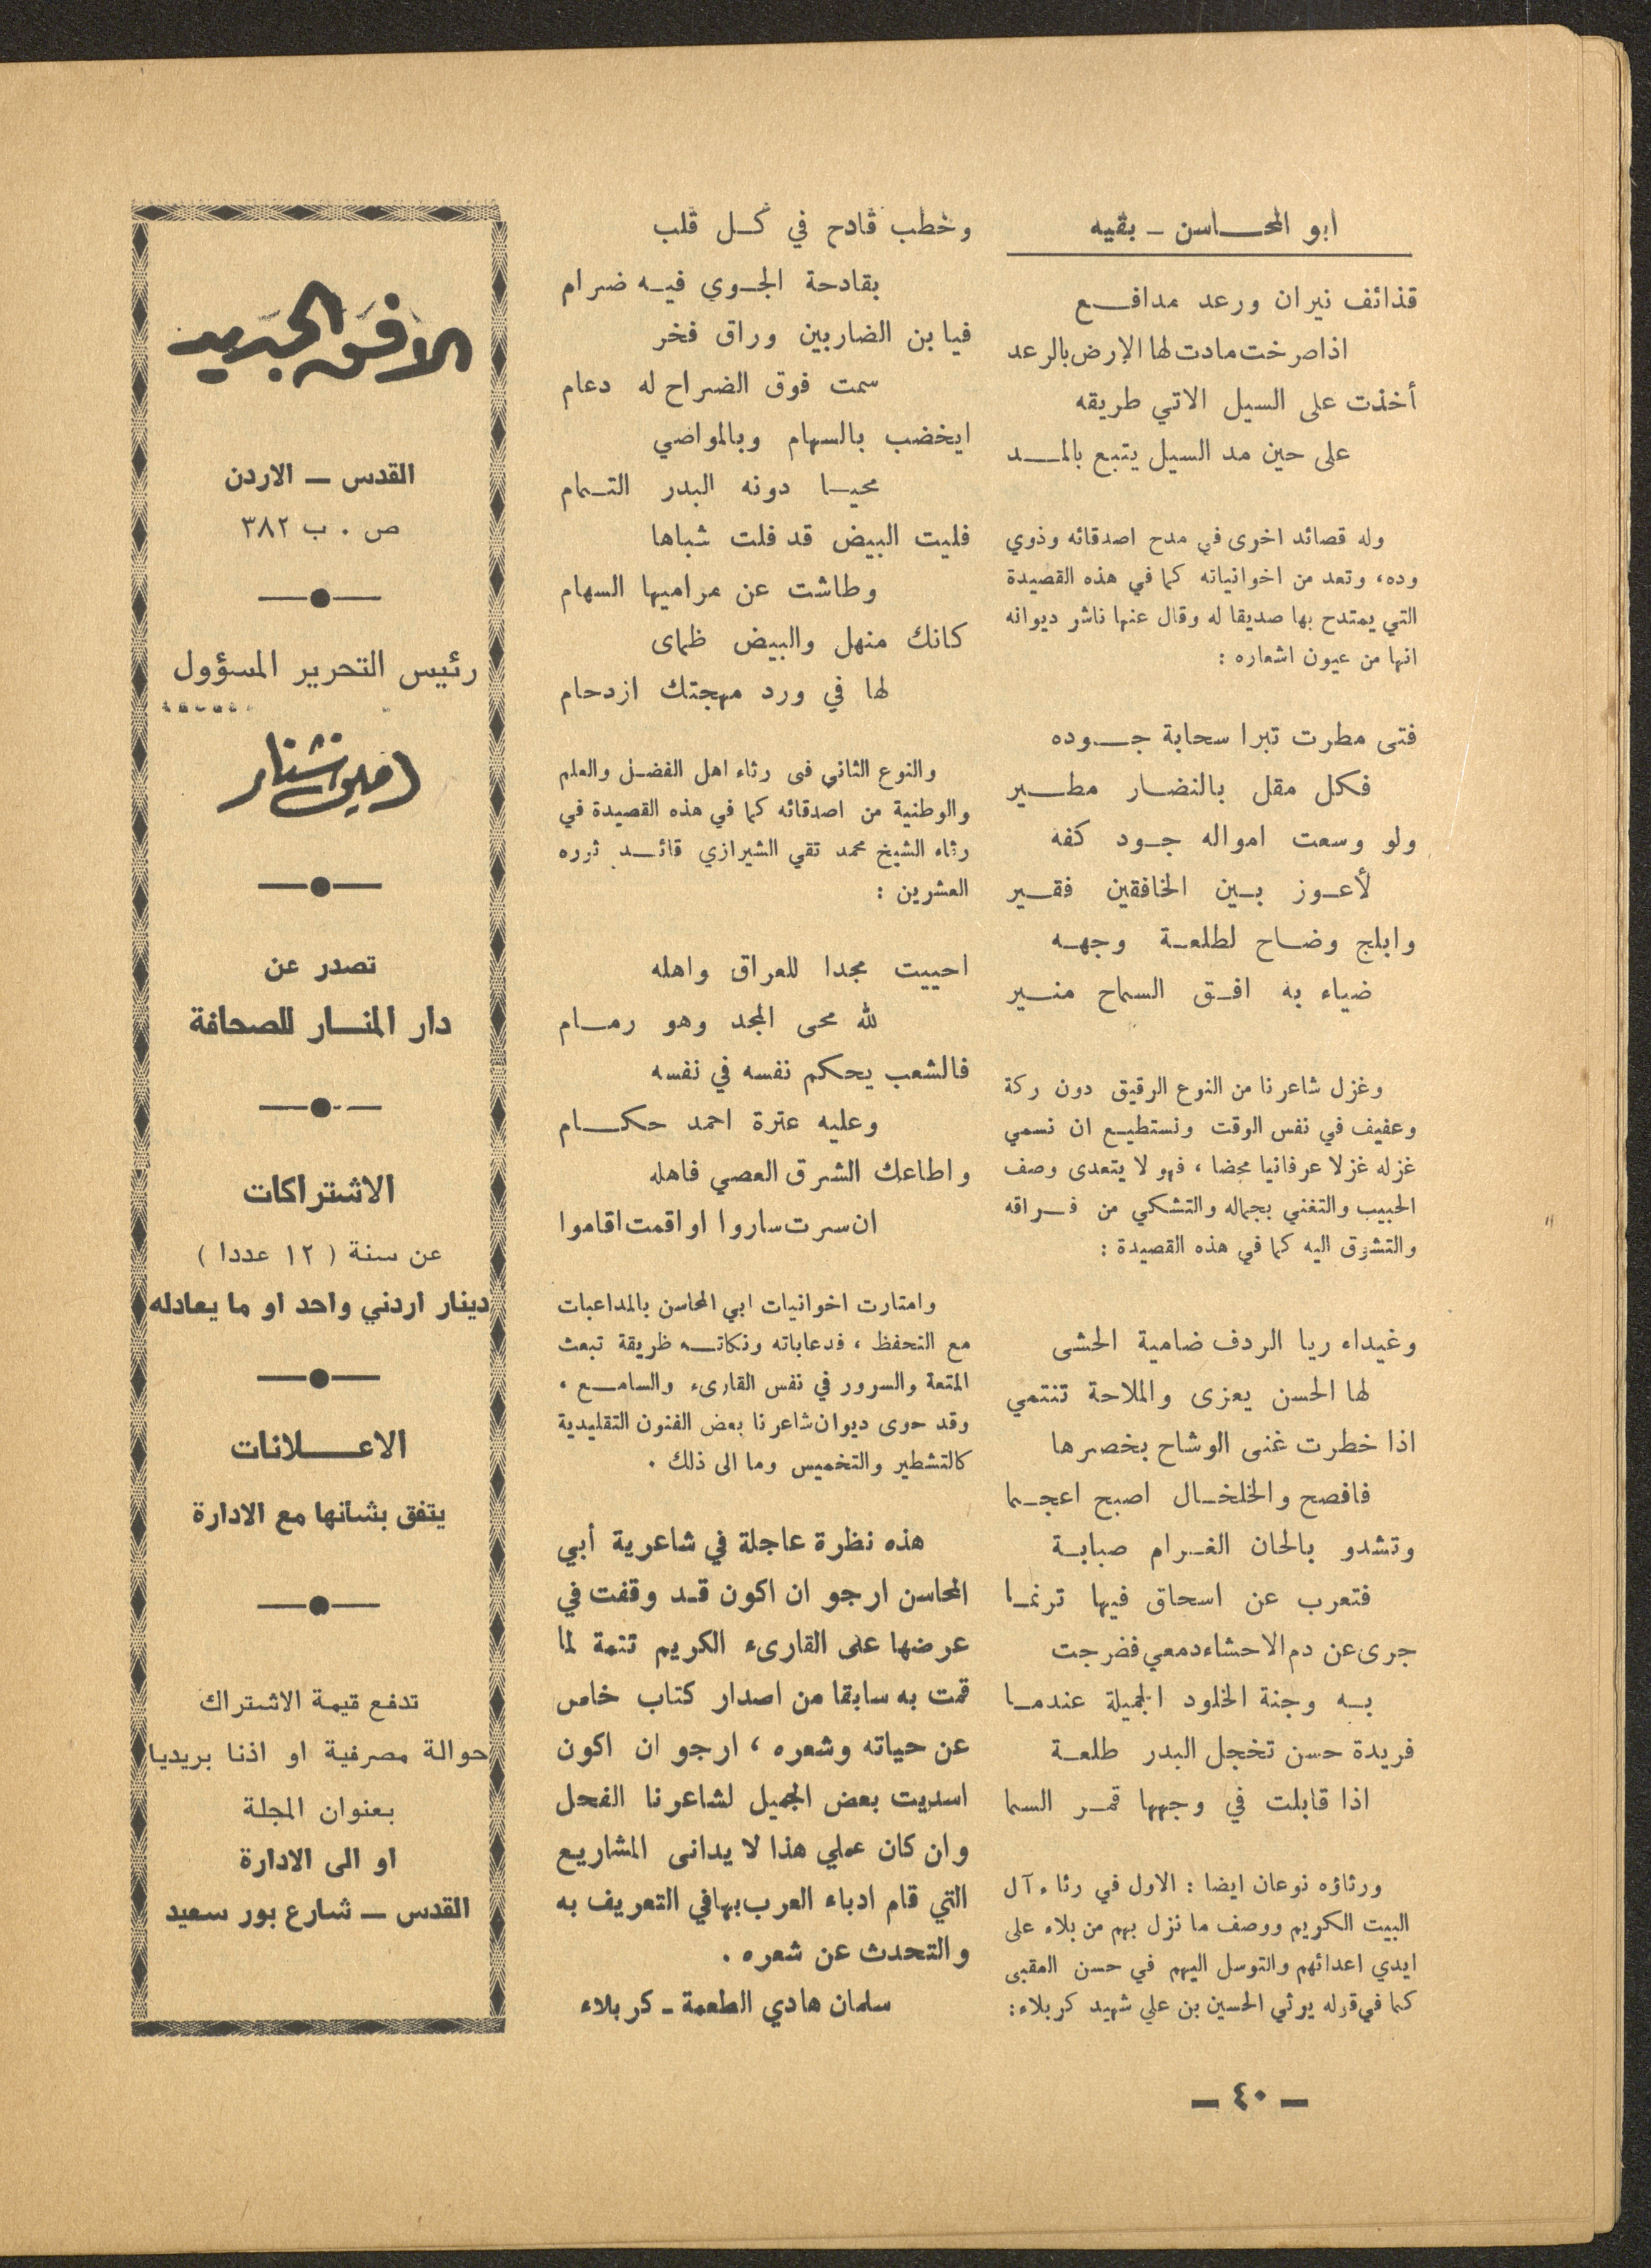 ابو المحاسن - بقيه
قذائف نيران ورعد مدافع
اذا صرخت مادت لها الارض بالرعد
أخذت على السيل الاتي طريقه
على حين مد السيل يتبع بالمد
وله قصائد اخرى في مدح اصدقائه وذوي
وده، وتعد من اخوانياته كما في هذه القصيدة
التي يمتدح بها صديقا له وقال عنها ناشر ديوانه
انها من عيون اشعاره :
فتى مطرت تبرا سحابة جوده
فكل مقل بالنضار مطير
ولو وسعت امواله جود كفه
لأعوز بين الخافقين فقير
وابلج وضاح لطلعة وجهه
ضياء به افق السماح منير
وغزل شاعرنا من النوع الرقيق دون ركة
وعفيف في نفس الوقت ونستطيع ان نسمي
غزله غزلا عرفانيا محضا ، فهو لا يتعدى وصف
الحبيب والتغني بجماله والتشكي من فراقه
والتشوق اليه كما في هذه القصيدة :
وغيداء ريا الردف ضامية الحشى
لها الحسن يعزى والملاحة تنتمي
اذا خطرت غنى الوشاح بخصرها
فافصح والخلخال اصبح اعجما
وتشدو بالحان الغرام صبابة
فتعرب عن اسحاق فيها ترنما
جرى عن دم الاحشاء دمعي فضرجت
به وجنة الخلود الجميلة عندما
فريدة حسن تخجل البدر طلعة
اذا قابلت في وجهها قمر السما
ورثاؤه نوعان ايضا : الاول في رثاء آل
البيت الكريم ووصف ما نزل بهم من بلاء على
ايدي اعدائهم والتوسل اليهم في حسن العقبى
كما في قوله يرثي الحسين بن علي شهيد كربلاء :
وخطب قادح في كل قلب
بقادحة الجوي فيه ضرام
فيا بن الضاربين وراق فخر
سمت فوق الضراح له دعام
ايخضب بالسهام وبالمواضي
محيا دونه البدر التمام
فليت البيض قد فلت شباها
وطاشت عن مراميها السهام
كانك منهل والبيض ظماى
لها في ورد مهجتك ازدحام
والنوع الثاني في رثاء اهل الفضل والعلم
والوطنية من اصدقائه كما في هذه القصيدة في
رثاء الشيخ محمد تقي الشيرازي قائد ثوره
العشرين :
احييت مجدا للعراق واهله
لله محى المجد وهو رمام
فالشعب يحكم نفسه في نفسه
وعليه عترة احمد حكام
واطاعك الشرق العصي فاهله
ان سرت ساروا او اقمت اقاموا
وامتارت اخوانيات ابي المحاسن بالمداعبات
مع التحفظ ، فدعاباته ونكاته ظريقة تبعث
المتعة والسرور في نفس القارىء والسامع .
وقد حوى ديوان شاعرنا بعض الفنون التقليدية
كالتشطير والتخميس وما الى ذلك .
هذه نظرة عاجلة في شاعرية أبي
المحاسن ارجو ان اكون قد وقفت في
عرضها على القارىء الكريم تتمة لما
قمت به سابقا من اصدار كتاب خاص
عن حياته وشعره ، ارجو ان اكون
اسديت بعض الجميل لشاعرنا الفحل
وان كان عملي هذا لا يدانى المشاريع
التي قام ادباء العرب بها في التعريف به
والتحدث عن شعره .
سلمان هادي الطعمة - كربلاء
الافق الجديد
القدس - الاردن
ص . ب ٣٨٢
رئيس التحرير المسؤول
امين شنار
تصدر عن
دار المنار للصحافة
الاشتراكات
عن سنة ( ١٢ عددا )
دينار اردني واحد او ما يعادله
الاعلانات
يتفق بشأنها مع الادارة
تدفع قيمة الاشتراك
حوالة مصرفية او اذنا بريديا
بعنوان المجلة
او الى الادارة
القدس - شارع بور سعيد
- ٤٠ -